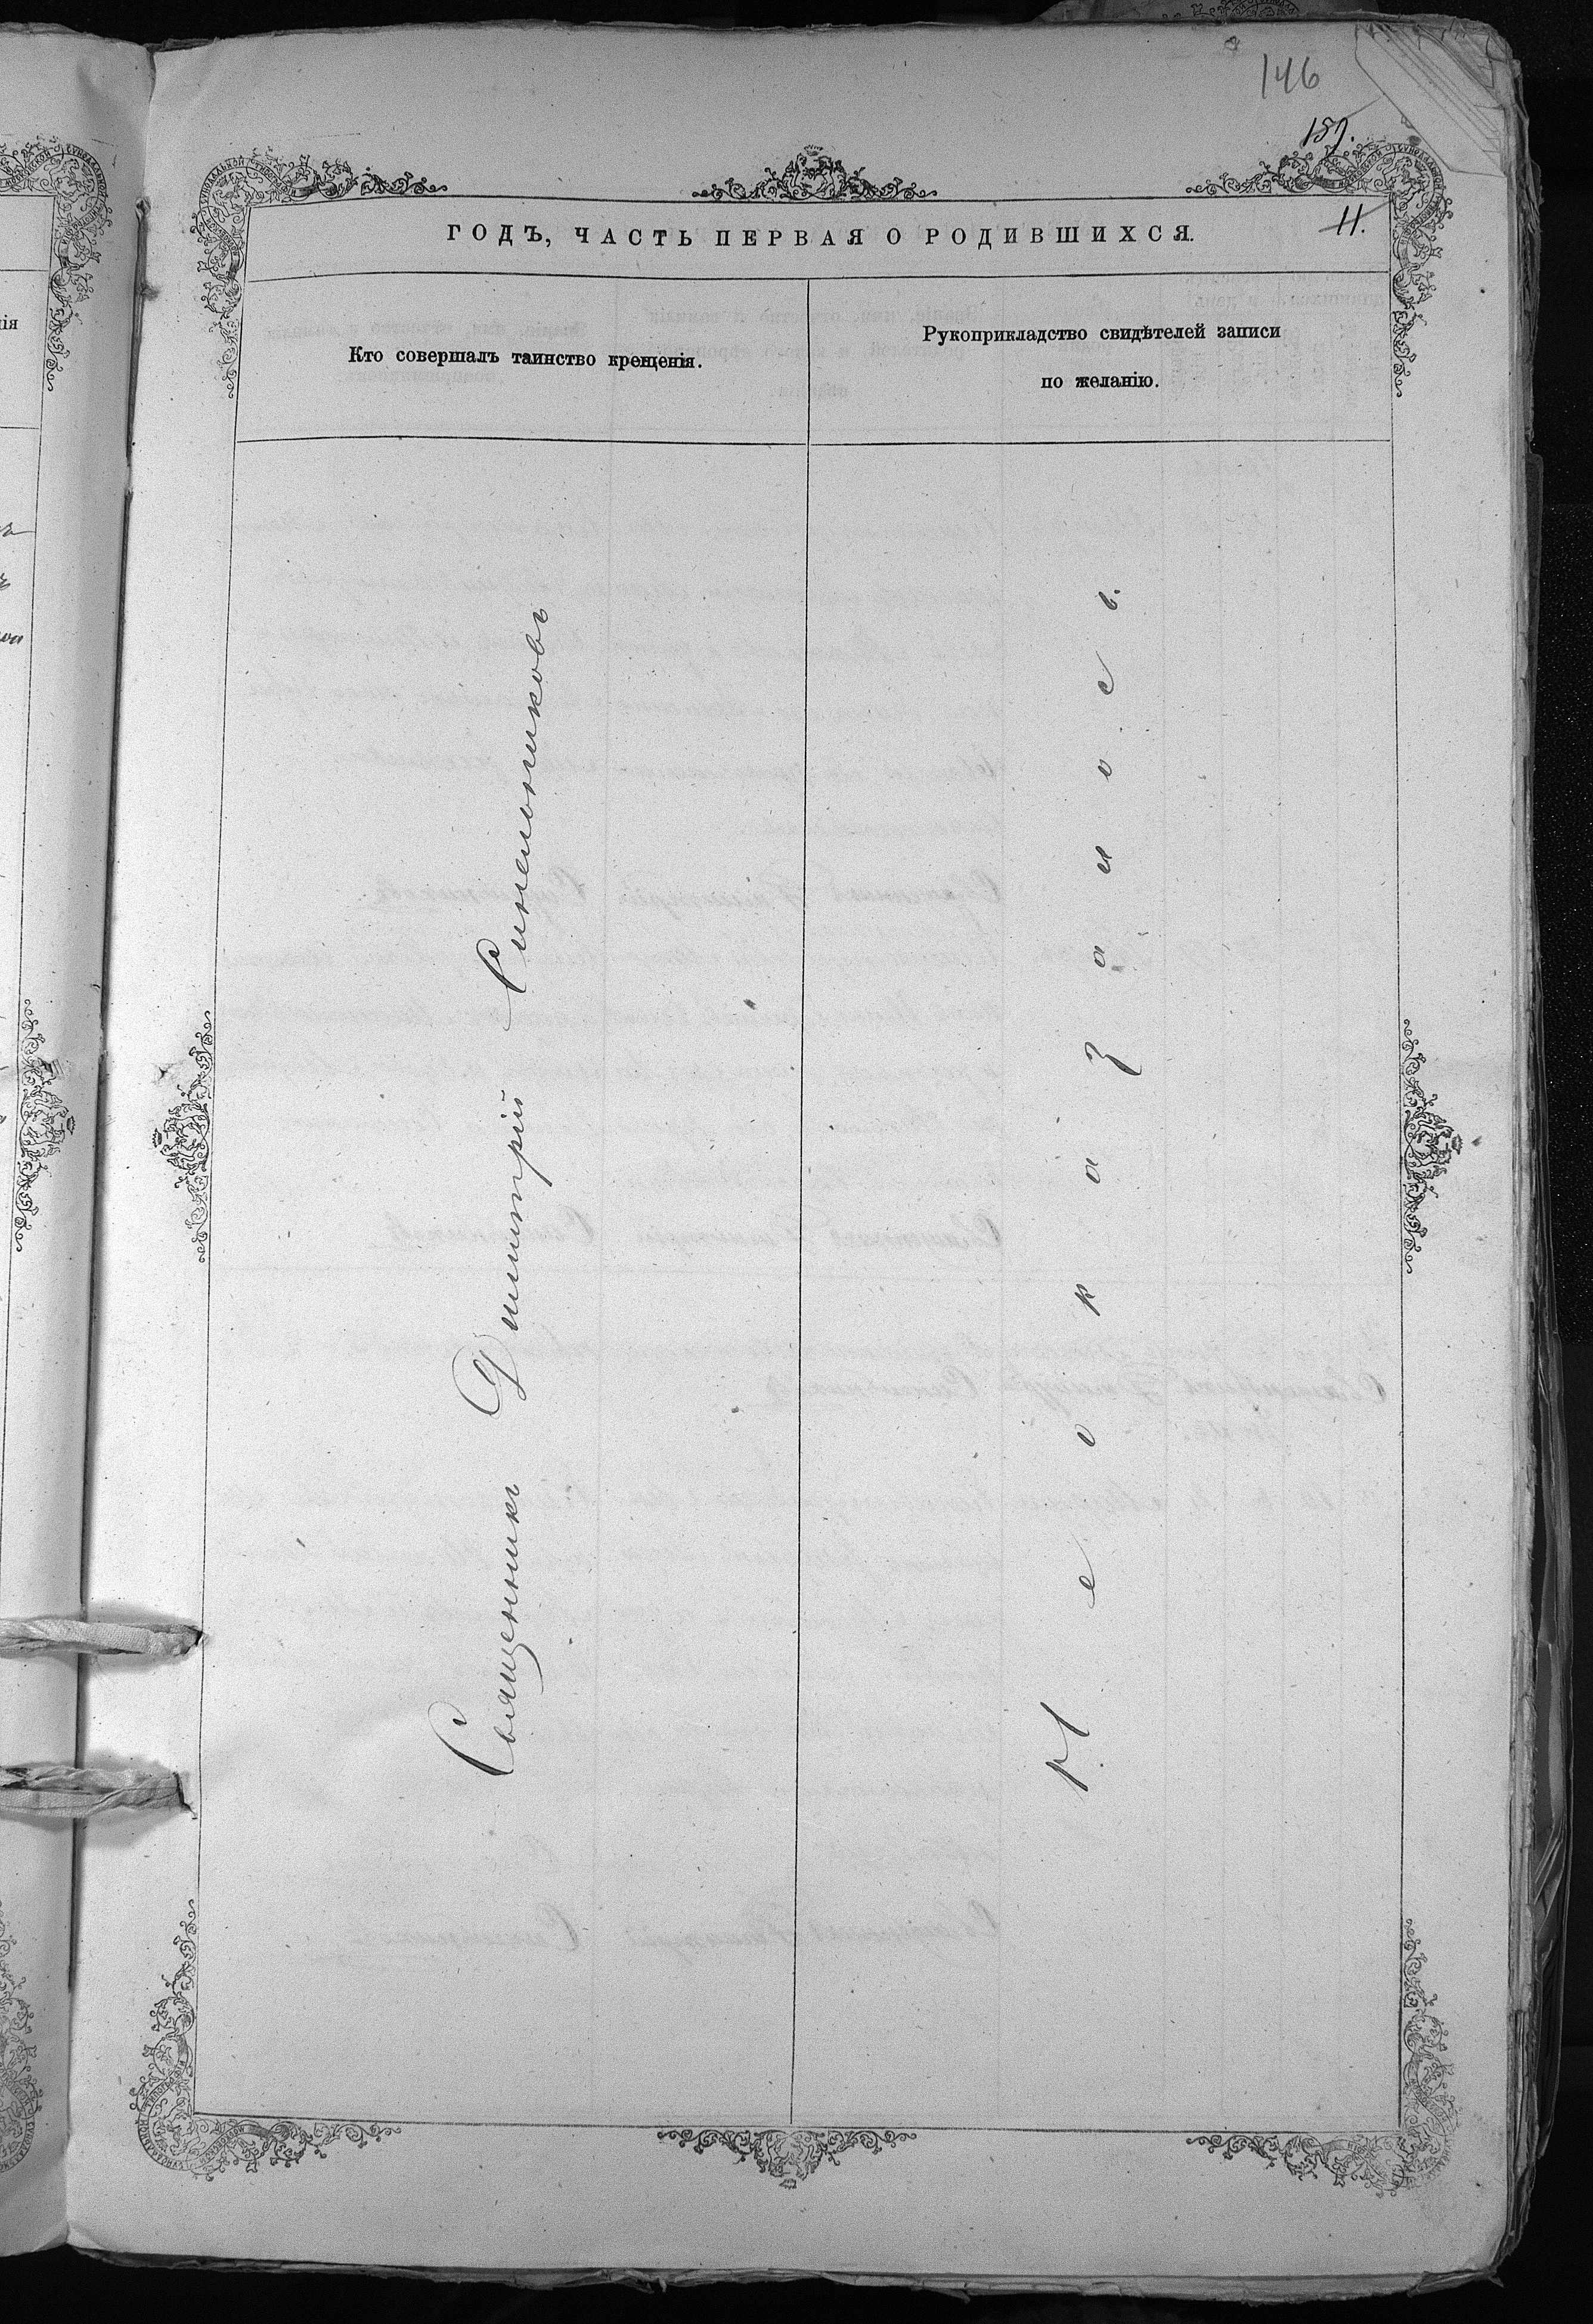 146
157.
11.
ГОДЪ, ЧАСТЬ ПЕРВАЯ О РОДИВШИХСЯ.
Кто совершалъ таинство крещенія.
Рукоприкладство свидѣтелей записи
по желанію.
Священникъ Димитрій Синельниковъ
Не оказалось.